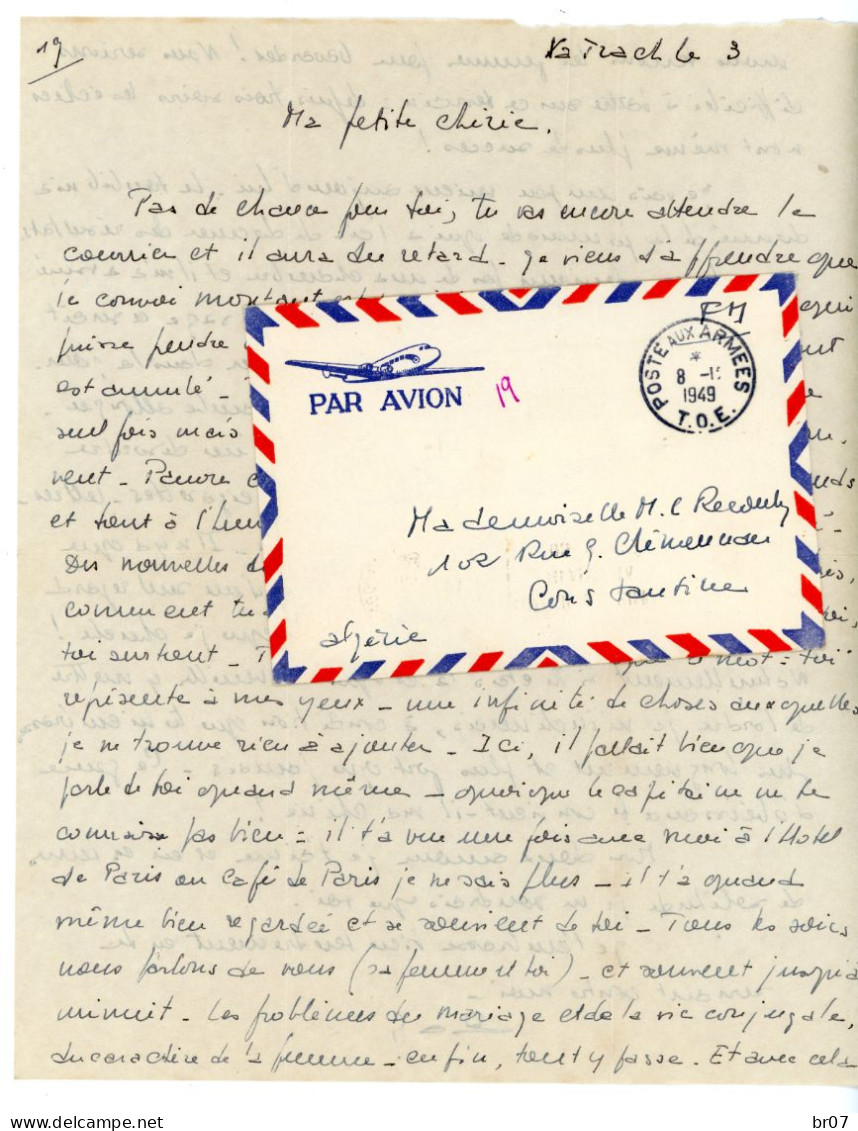 19
Na Trach le 3
Ma petite chérie.
Pas de chance pour toi, tu vas encore attendre le
courrier et il aura du retard - Je viens d'apprendre que
le convoi montant est
qui
puisse prendre
est annulé -
seul fois mais
vent - Pauvre
et tout à l'heure
Des nouvelles de
comment tu
toi surtout -
que ce mot - toi
représente à mes yeux - une infinité de choses auxquelles
je ne trouve rien à ajouter - Ici, il fallait bien que je
parle de toi quand même - quoique le capitaine ne te
connaisse pas bien - il t'a vue une fois avec moi à l'Hôtel
de Paris ou Café de Paris je ne sais plus - il t'a quand
même bien regardée et se souvient de toi - Tous les soirs
nous parlons de vous (sa femme et toi) - et souvent jusqu'à
minuit - Les problèmes du mariage et de la vie conjugale,
du caractère de la femme - enfin, tout y passe. Et avec cela
FM
PAR AVION
19
POSTE AUX ARMEES
*
8 -1
1949
T.O.E.
Mademoiselle M. C
102 Rue G. Clémenceau
Constantine
Algérie
br07